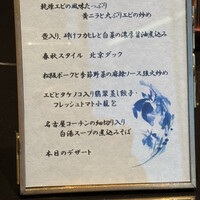 乾燥エビの風味たっぷり
黄ニラと大ぶりエビの炒め
壺入り、砕けフカヒレと白菜の濃厚醤油煮込み
春秋スタイル 北京ダック
松阪ポークと季節野菜の麻辣ソース強火炒め
エビとタケノコ入り翡翠蒸し餃子・
フレッシュトマト小籠包
名古屋コーチンの細切り入り
白湯スープの煮込みそば
本日のデザート